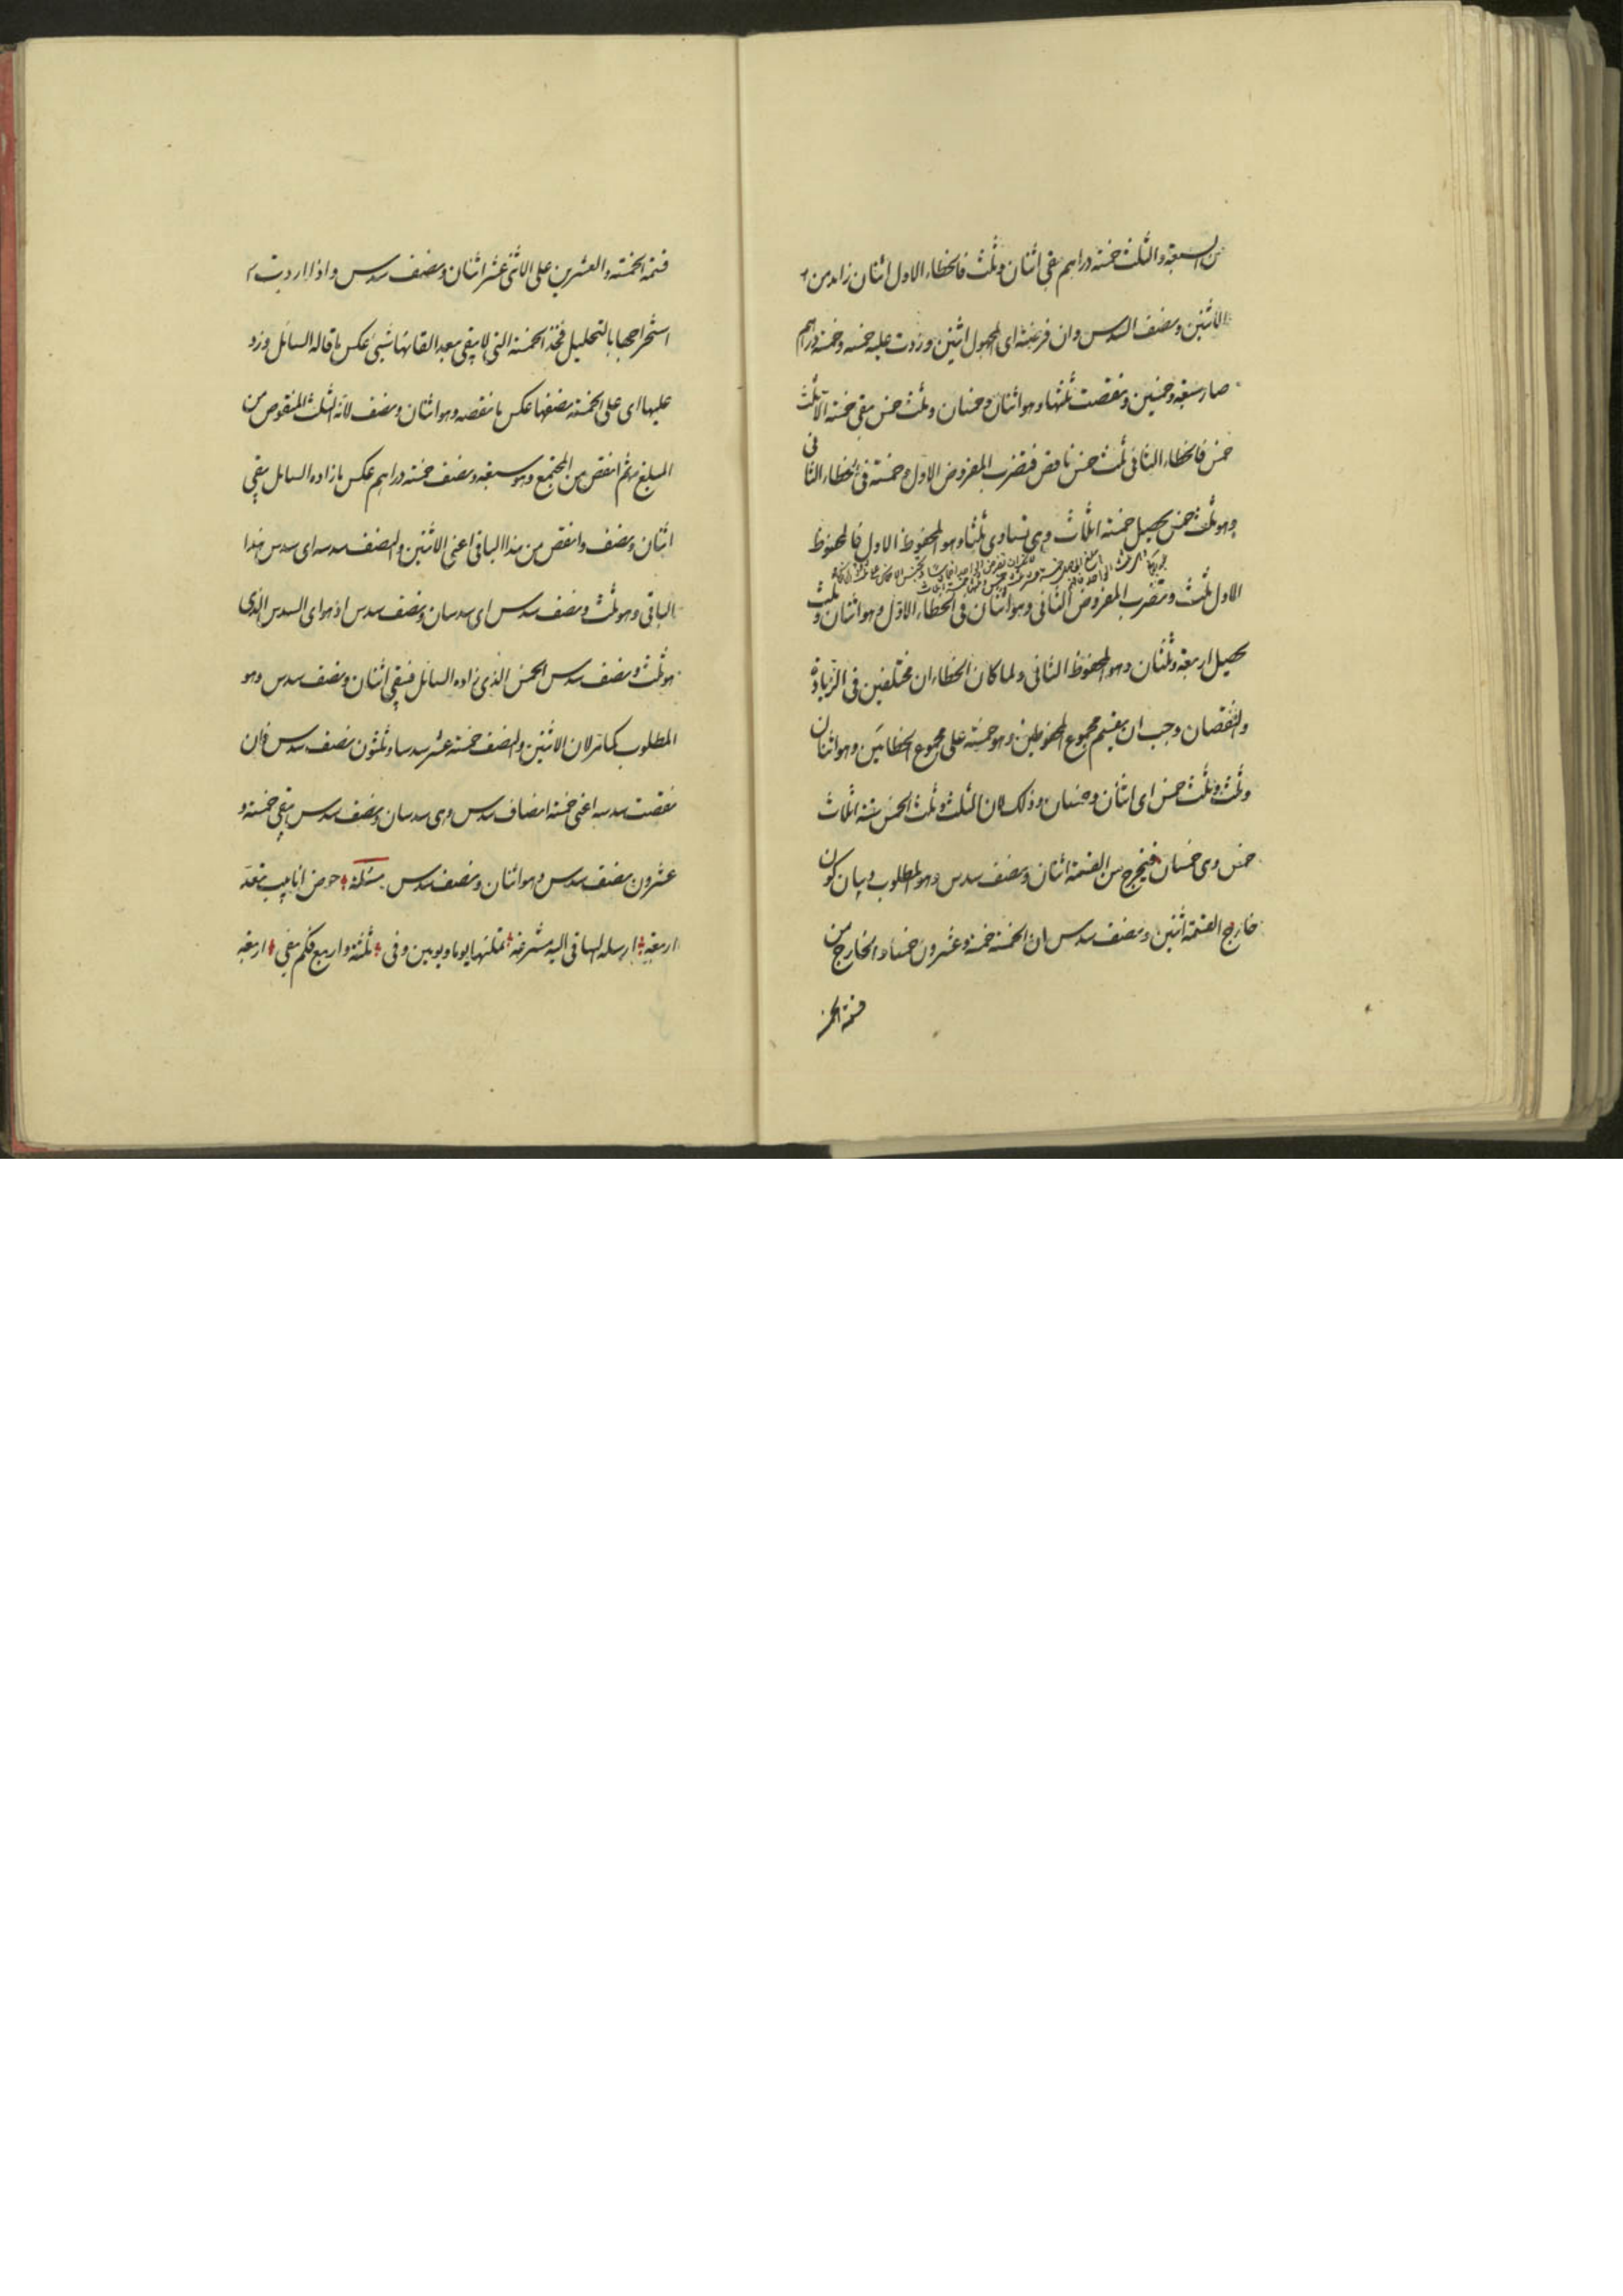 من السبعة والثلث خمسة دراهم بقي اثنان وثلث فالخطاء الاول اثنان زايد من
الاثنين ونصف السدس وان فرضته اى المجهول اثنين وزدت عليه خمسه وخمسة دراهم
صار سبعة وخمسين ونقصت ثلثها وهو اثنان وخمسان وثلث خمس بقي خمسة الا ثلث
خمس فالخطاء الثانى ثلث خمس ناقص فتضرب المفروض الاول وهو خمسة فى الخطاء الثانى
وهو ثلث خمس يحصل خمسة اثلاث وهى تساوى ثلثا وهو المحفوظ الاول فالمحفوظ
الاول ثلث وتضرب المفروض الثانى وهو اثنان فى الخطاء الاول وهو اثنان وثلث
يحصل اربعة وثلثان وهو المحفوظ الثانى ولما كان الخطاءان مختلفين فى الزيادة
والنقصان وجب ان يقسم مجموع المحفوظين وهو خمسة على مجموع الخطائين وهو اثنان
وثلث وثلث خمس اى اثنان وخمسان وذلك لان الثلث وثلث الخمس ستة اثلاث
خمس وهى خمسان فيخرج من القسمة اثنان ونصف سدس وهو المطلوب وبيان كون
خارج القسمة اثنين ونصف سدس ان الخمسة خمسة وعشرون خمسا والخارج من
قسمة الخمسة
قسمة الخمسة والعشرين على الاثنى عشر اثنان ونصف سدس واذا اردت
استخراجها بالتحليل فخذ الخمسة التى لا يبقى بعد القائها شيئ عكس ما قاله السائل وزد
عليها اى على الخمسة نصفها عكس ما نقصه وهو اثنان ونصف لانه الثلث المنقوص من
المبلغ ثم انقص من المجتمع وهو سبعة ونصف خمسة دراهم عكس ما زاده السائل يبقى
اثنان ونصف وانقص من هذا الباقى اعنى الاثنين والنصف سدسه اى سدس هذا
الباقى وهو ثلث ونصف سدس اى سدسان ونصف سدس اذ هو اى السدس الذى
هو ثلث ونصف سدس الخمس الذى زاده السائل فيبقى اثنان ونصف سدس وهو
المطلوب كما مر لان الاثنين والنصف خمسة عشر سدسا وثلثون نصف سدس فان
نقصت سدسه اعنى خمسة انصاف سدس وهى سدسان ونصف سدس يبقى خمسة و
عشرون نصف سدس وهو اثنان ونصف سدس مسئلة حوض انابيب تعد
اربعة ارسله الساقى اليه مشرعة تملئها يوما ويومين وفى ثلثة واربع فكم يفى اربعة